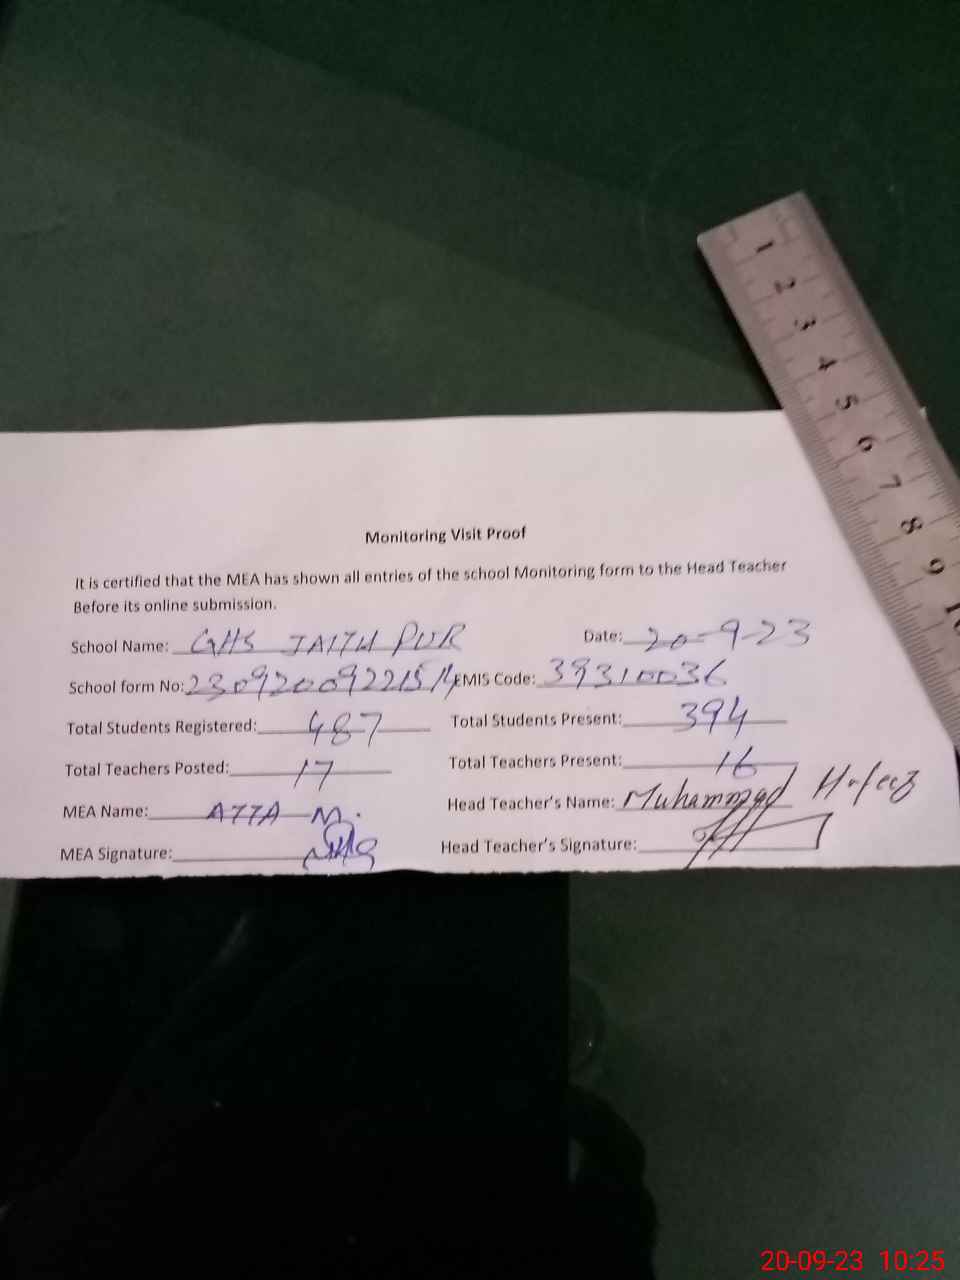 1 2 3 4 5 6 7 8 9
Monitoring Visit Proof
It is certified that the MEA has shown all entries of the school Monitoring form to the Head Teacher
Before its online submission.
School Name: GHS JAITH PUR Date: 20-9-23
School form No: EMIS Code: 39310036
Total Students Registered: 487 Total Students Present: 394
Total Teachers Posted: 17 Total Teachers Present: 16
MEA Name: ATTA M. Head Teacher's Name: Muhammad Hafeez
MEA Signature: Head Teacher's Signature:
20-09-23 10:25